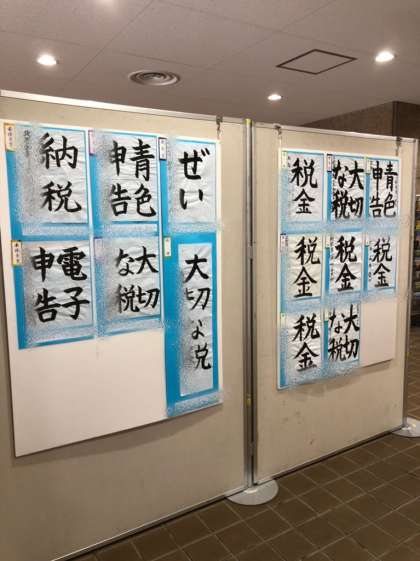 納税
青色
申告
ぜい
電子
申告
大切
な税
大切な税
税金
大切
な税
青色
申告
税金
税金
税金
税金
大切
な税